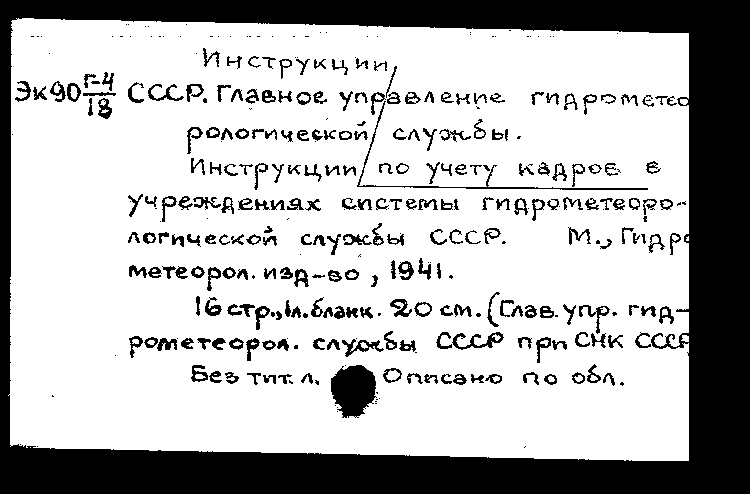 Инструкции
Эк90 Г-4/18 СССР. Главное управление гидрометео
рологической службы.
Инструкции по учету кадров в
учреждениях системы гидрометеоро-
логической службы СССР. М., Гидро
метеорол. изд-во, 1941.
16 стр., 1л. бланк. 20 см. (Глав. упр. гид-
рометеорол. службы СССР при СНК СССР
Без тит. л. Описано по обл.